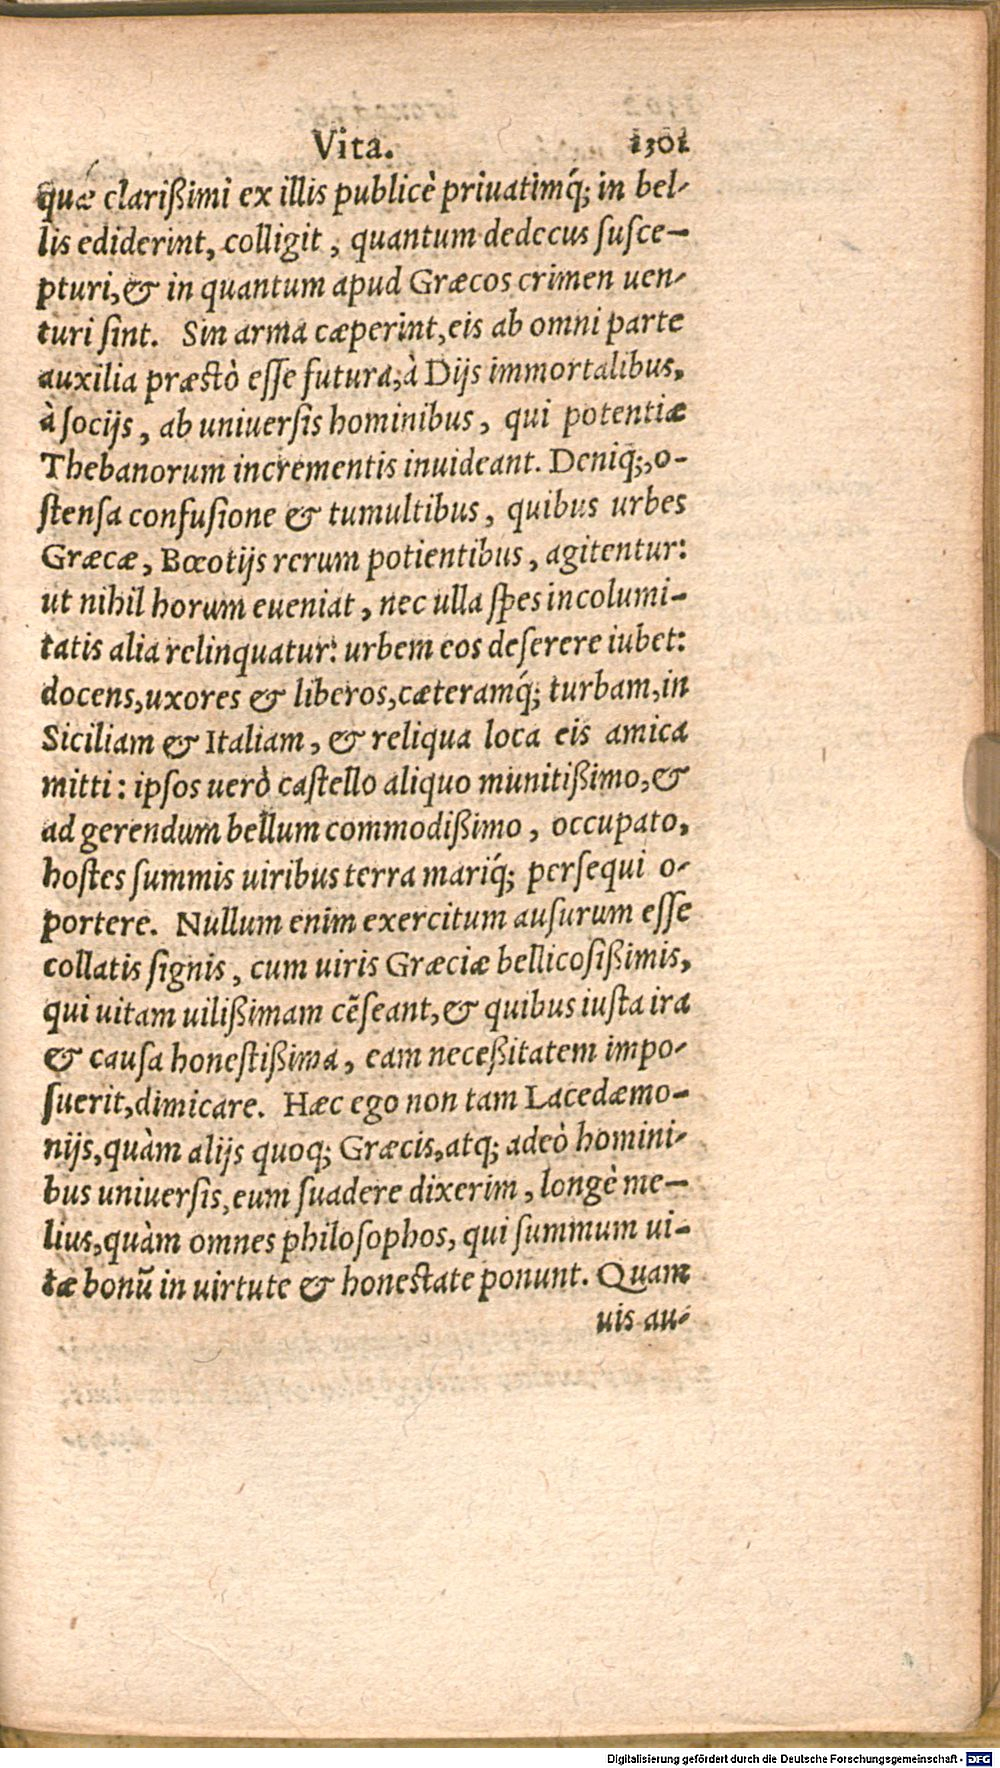 Vita. 1301
quæ clarißimi ex illis publicè priuatimq́; in bel-
lis ediderint, colligit, quantum dedecus ſuſce-
pturi, & in quantum apud Græcos crimen uen-
turi ſint. Sin arma cæperint, eis ab omni parte
auxilia præstò eſſe futura, à Dijs immortalibus,
à ſocijs, ab uniuerſis hominibus, qui potentiæ
Thebanorum incrementis inuideant. Deniq́;, o-
ſtenſa confuſione & tumultibus, quibus urbes
Græcæ, Bœotijs rerum potientibus, agitentur:
ut nihil horum eueniat, nec ulla ſpes incolumi-
tatis alia relinquatur: urbem eos deſerere iubet:
docens, uxores & liberos, cæteramq́; turbam, in
Siciliam & Italiam, & reliqua loca eis amica
mitti: ipſos uerò caſtello aliquo munitißimo, &
ad gerendum bellum commodißimo, occupato,
hoſtes ſummis uiribus terra mariq́; perſequi o-
portere. Nullum enim exercitum auſurum eſſe
collatis ſignis, cum uiris Græciæ bellicoſißimis,
qui uitam uilißimam cẽſeant, & quibus iuſta ira
& cauſa honeſtißima, eam neceßitatem impo-
ſuerit, dimicare. Hæc ego non tam Lacedæmo-
nijs, quàm alijs quoq; Græcis, atq; adeò homini-
bus uniuerſis, eum ſuadere dixerim, longè me-
lius, quàm omnes philoſophos, qui ſummum ui-
tæ bonũ in uirtute & honeſtate ponunt. Quam
uis au-
Digitalisierung gefördert durch die Deutsche Forschungsgemeinschaft - DFG